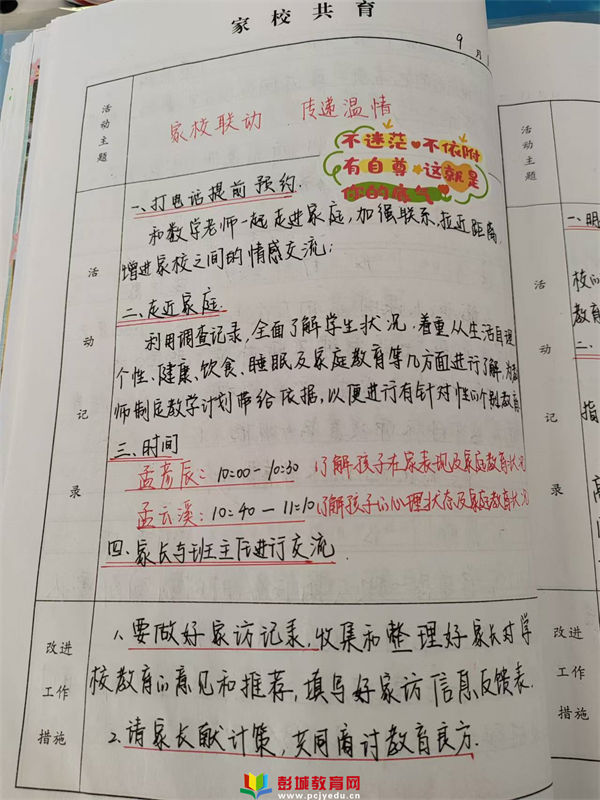 家校共育
9月
活动主题
家校联动 传递温情
不迷茫 不依附
有自尊 这就是
你的底气
活动记录
一、打电话提前预约.
和数学老师一起走进家庭,加强联系,拉近距离,
增进家校之间的情感交流;
二、走近家庭.
利用调查记录,全面了解学生状况,着重从生活自理
个性、健康、饮食、睡眠及家庭教育等几方面进行了解,为教
师制定教学计划带给依据,以便进行有针对性的个别教育
三、时间
孟彦辰: 10:00-10:30 (了解孩子在家表现及家庭教育状况
孟云溪: 10:40-11:10 (了解孩子的心理状态及家庭教育状况
四、家长与班主任进行交流
改进
工作
措施
1、要做好家访记录,收集和整理好家长对学
校教育的意见和推荐,填写好家访信息反馈表.
2.请家长献计策,共同商讨教育良方.
活动主题
活动记录
一、明
校的
教育
二、
指
改进
工作
措施
彭城教育网
www.pcjyedu.cn